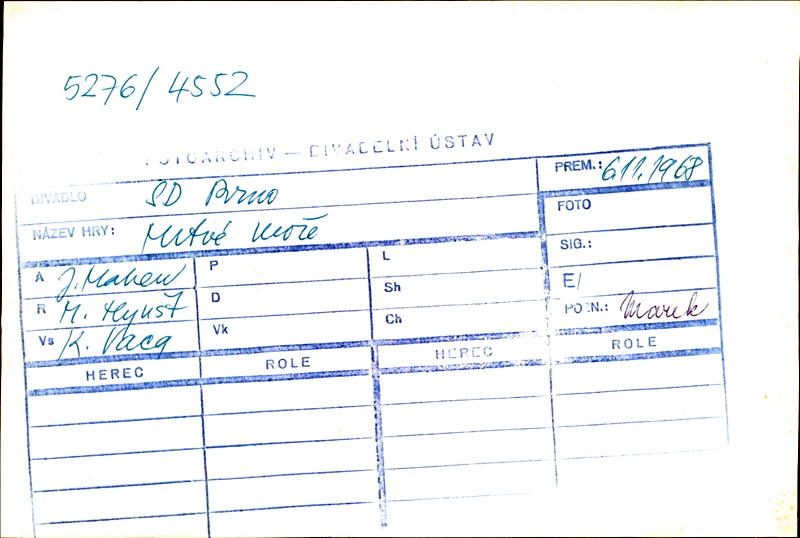 5276/4552
FOTOARCHIV — DIVADELNÍ ÚSTAV
DIVADLO SD Brno PREM.: 6.11.1968
NÁZEV HRY: Mrtvé moře FOTO
SIG.:
A J. Mahen P L
E/
R M. Hynšt D Sh
POZN.: Marek
Vs K. Vaca Vk Ch
HEREC ROLE HEREC ROLE